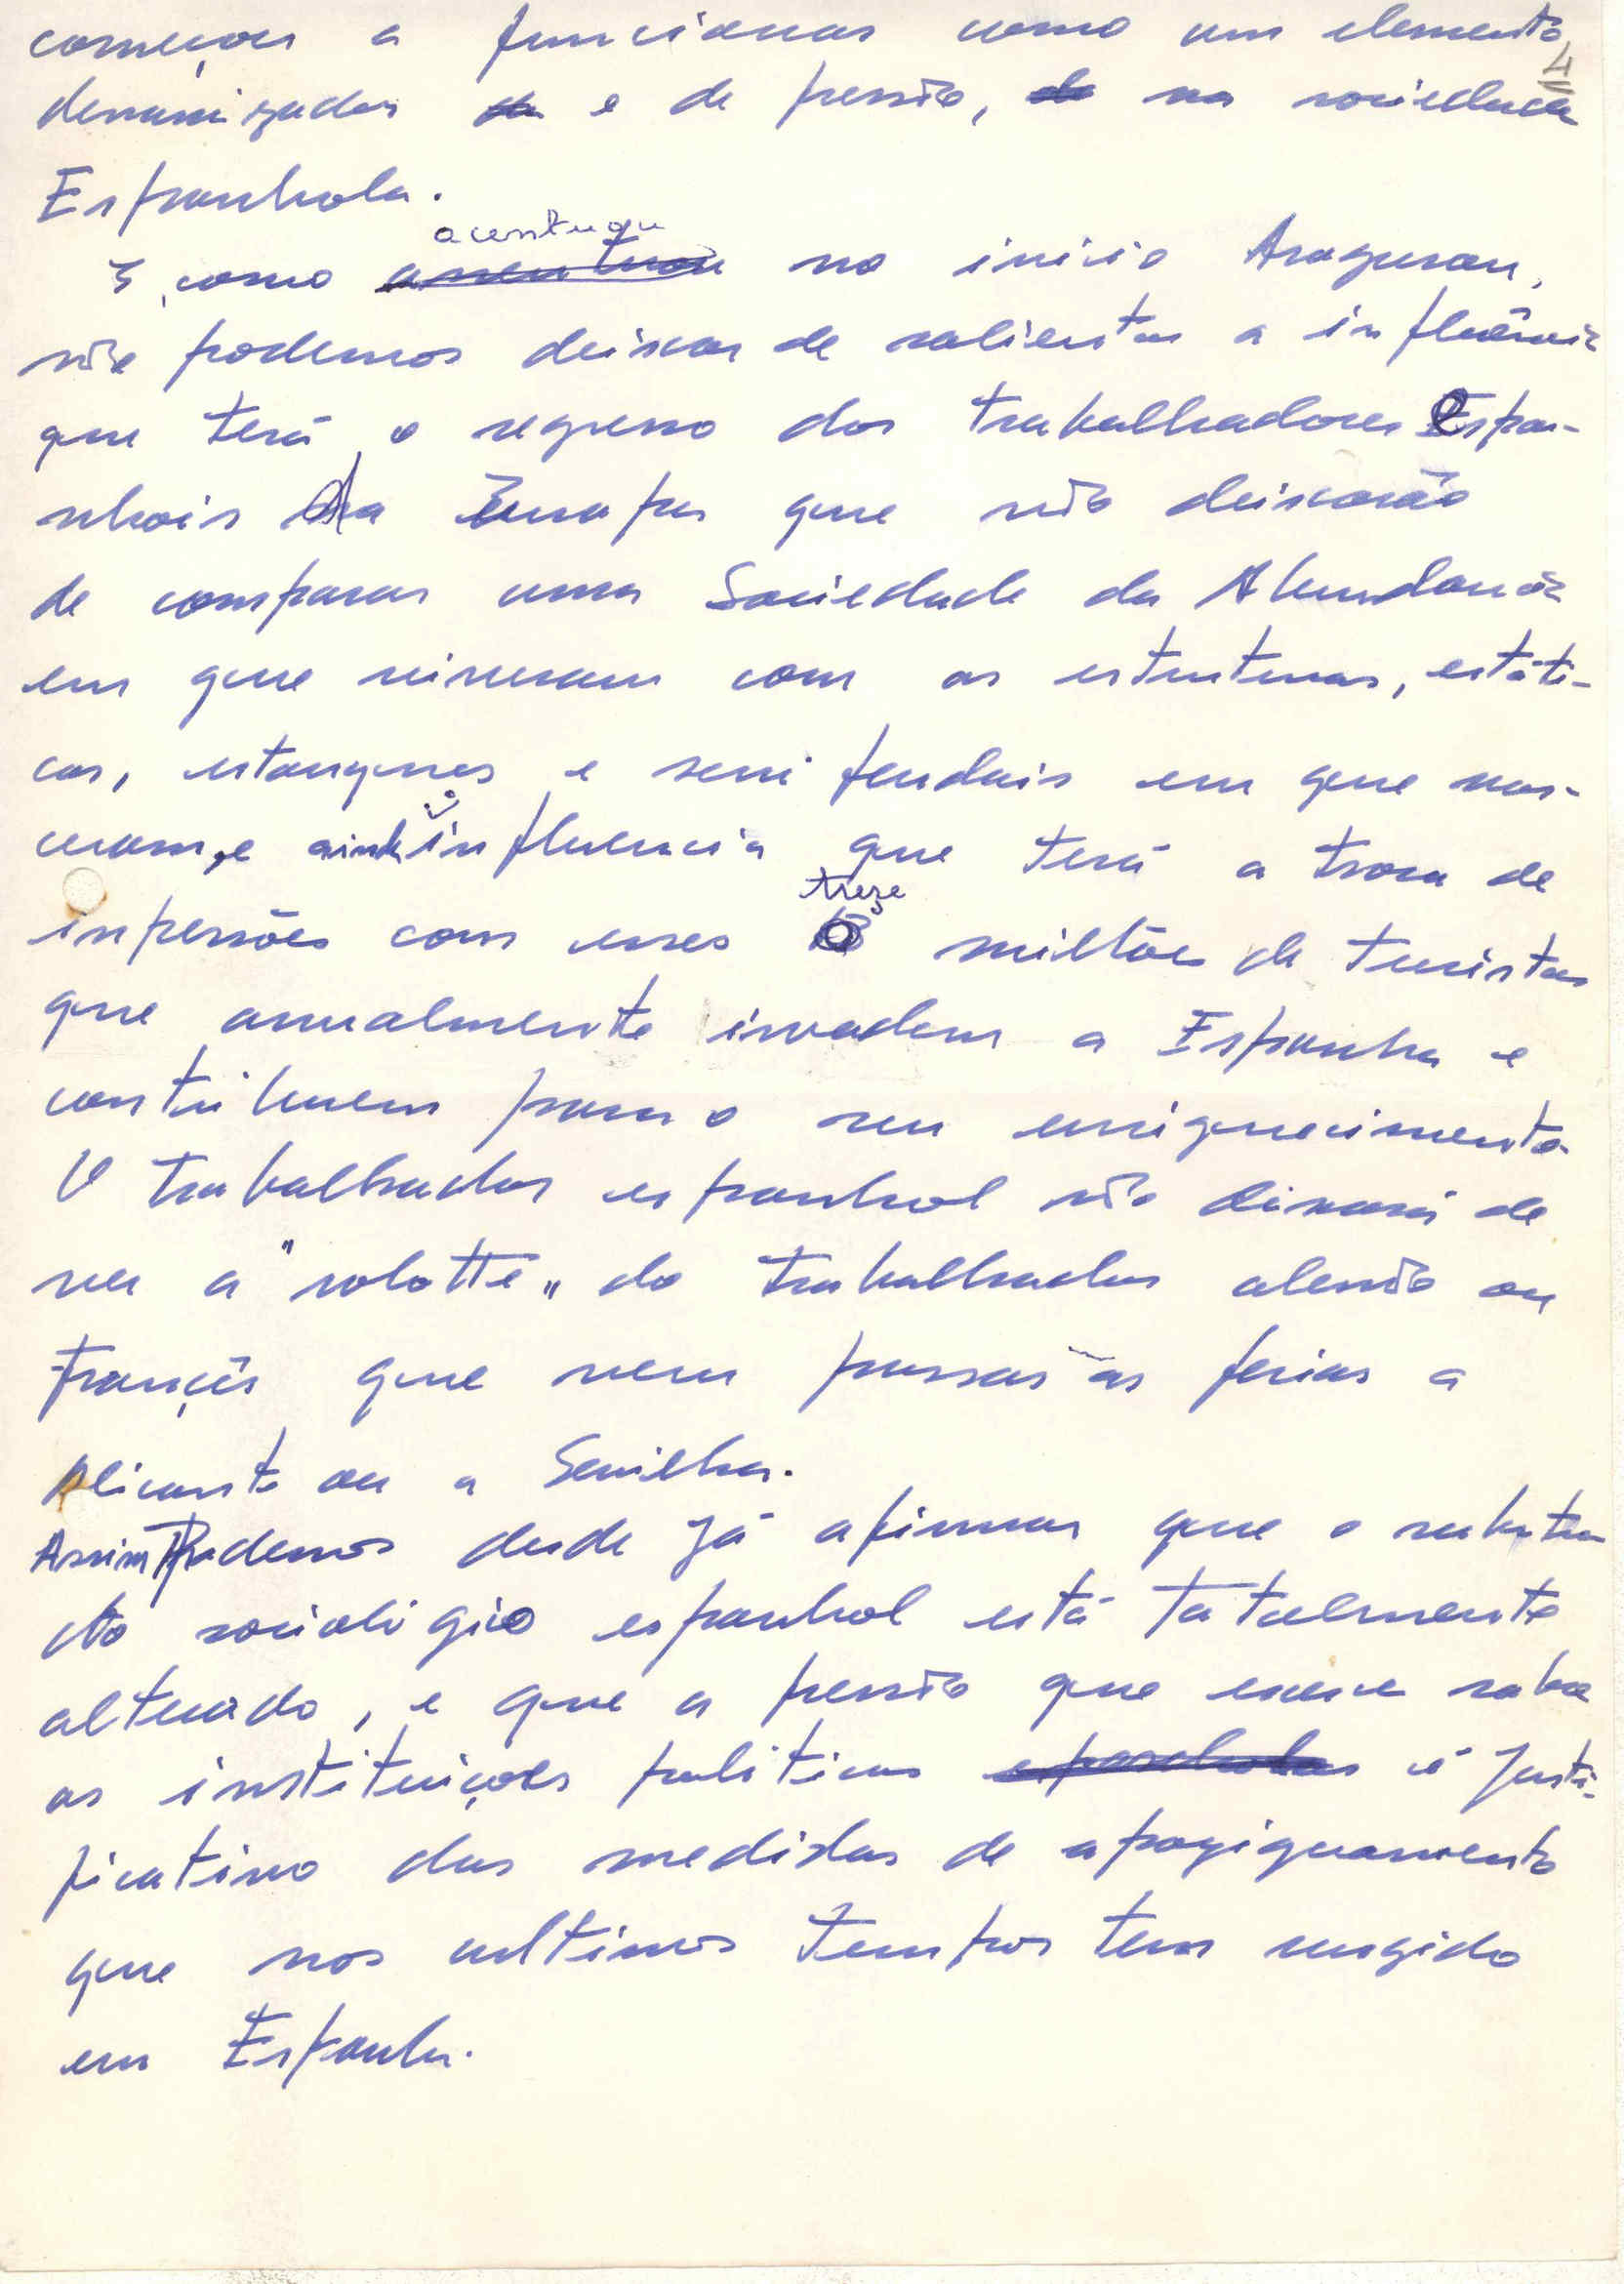 começou a funcionar como um elemento
4
denamizador e de pressão, na sociedade
Espanhola.
acentuou
E, como assentuou no inicio Aranguren,
não podemos deixar de salientar a influência
que terá o regresso dos trabalhadores Espa-
nhois da Europa que não deixarão
de comparar uma Sociedade da Abundância
em que viveram com as estruturas, estáti-
cas, estanques e semi feudais em que nas-
ceram, e ainda influencia que terá a troca de
treze
inpressões com esses milhões de turistas
que anualmente invadem a Espanha e
contribuem para o seu enriquecimento.
O trabalhador espanhol não deixará de
ver a "rolotte" do trabalhador alemão ou
françês que vem passar as ferias a
Alicante ou a Sevilha.
Assim Podemos desde já afirmar que o substra
cto sociológico espanhol está totalmente
alterado, e que a pressão que exerce sobre
as instituições politicas espanholas é justi-
ficativo das medidas de apaziguamento
que nos ultimos tempos tem surgido
em Espanha.